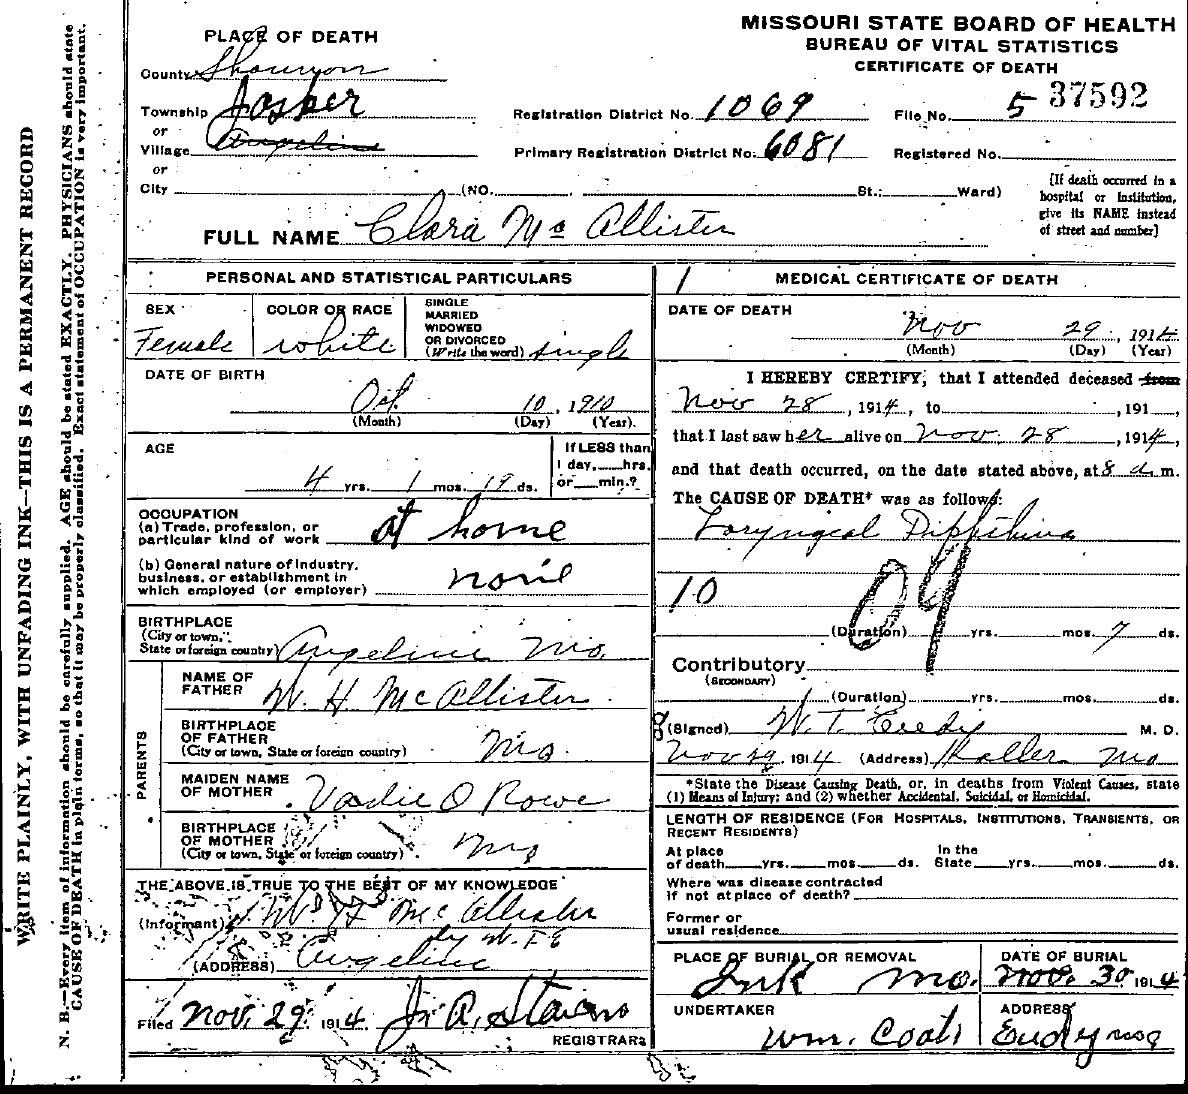 MISSOURI STATE BOARD OF HEALTH
BUREAU OF VITAL STATISTICS
CERTIFICATE OF DEATH
PLACE OF DEATH
County
Township Jasper
or
Village Angeline
or
City (NO. St.; Ward)
Registration District No. 1069
File No. 5 37592
Primary Registration District No. 6081
Registered No.
[If death occurred in a
hospital or institution,
give its NAME instead
of street and number]
FULL NAME Clara Mc Allister
PERSONAL AND STATISTICAL PARTICULARS
SEX
Female
COLOR OR RACE
white
SINGLE
MARRIED
WIDOWED
OR DIVORCED
(Write the word) single
DATE OF BIRTH
Oct. 10, 1910
(Month) (Day) (Year).
AGE
4 yrs. 1 mos. 19 ds.
If LESS than
1 day, hrs.
or min.?
OCCUPATION
(a) Trade, profession, or
particular kind of work at home
(b) General nature of industry,
business, or establishment in
which employed (or employer) none
BIRTHPLACE
(City or town,
State or foreign country) Angeline Mo.
PARENTS
NAME OF
FATHER W. H. McAllister
BIRTHPLACE
OF FATHER
(City or town, State or foreign country) Mo.
MAIDEN NAME
OF MOTHER O Rowe
BIRTHPLACE
OF MOTHER
(City or town, State or foreign country) Mo
THE ABOVE IS TRUE TO THE BEST OF MY KNOWLEDGE
(Informant) W. H McAllister
by W. T. E
(ADDRESS) Angeline
Filed Nov. 29. 1914
REGISTRAR
1 MEDICAL CERTIFICATE OF DEATH
DATE OF DEATH
Nov 29, 1914
(Month) (Day) (Year)
I HEREBY CERTIFY, that I attended deceased from
Nov 28, 1914, to , 191 ,
that I last saw her alive on Nov. 28, 1914,
and that death occurred, on the date stated above, at 8 a.m.
The CAUSE OF DEATH* was as follows:
Laryngeal Diphtheria
10 09
(Duration) yrs. mos. 7 ds.
Contributory
(SECONDARY)
(Duration) yrs. mos. ds.
(Signed) W. T. Eudy M. D.
Nov 29 1914 (Address) Mo
*State the Disease Causing Death, or, in deaths from Violent Causes, state
(1) Means of Injury; and (2) whether Accidental, Suicidal, or Homicidal.
LENGTH OF RESIDENCE (FOR HOSPITALS, INSTITUTIONS, TRANSIENTS, OR
RECENT RESIDENTS)
At place
of death yrs. mos. ds.
In the
State yrs. mos. ds.
Where was disease contracted
if not at place of death?
Former or
usual residence
PLACE OF BURIAL OR REMOVAL
Ink Mo.
DATE OF BURIAL
Nov. 30 1914
UNDERTAKER
Wm. Coats
ADDRESS
Eudy Mo
WRITE PLAINLY, WITH UNFADING INK—THIS IS A PERMANENT RECORD
N. B.—Every item of information should be carefully supplied. AGE should be stated EXACTLY. PHYSICIANS should state
CAUSE OF DEATH in plain terms, so that it may be properly classified. Exact statement of OCCUPATION is very important.